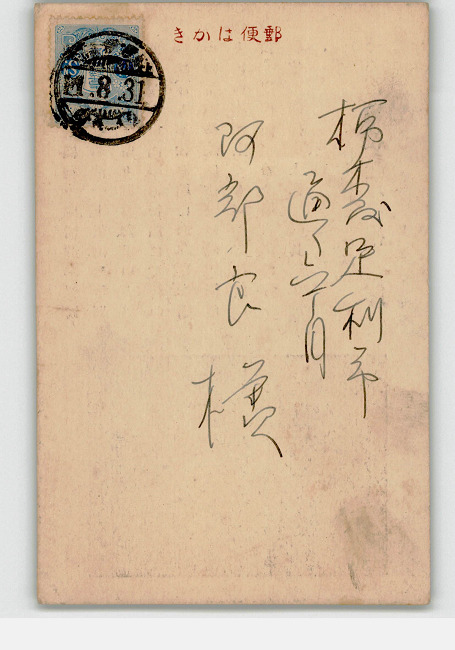 郵便はかき
8.31
栃木縣足利市
通り六丁目
阿部良様